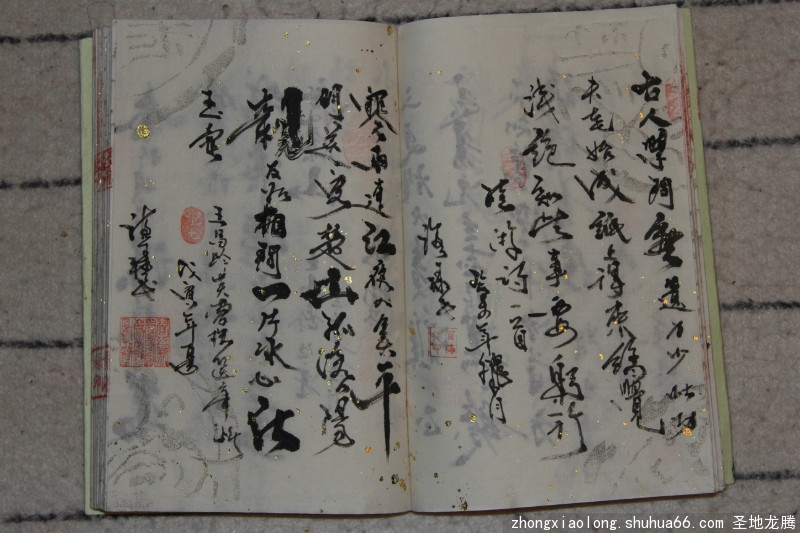 古人學問無遺力少壯功
夫老始成紙上得來終覺
淺絕知此事要躬行
陸游詩一首
年 月
寒雨連江夜入吳平
明送客楚山孤洛陽
親友如相問一片冰心在
玉壺
王昌齡芙蓉樓送辛漸
戊寅年夏
zhongxiaolong.shuhua66.com 圣地龙腾